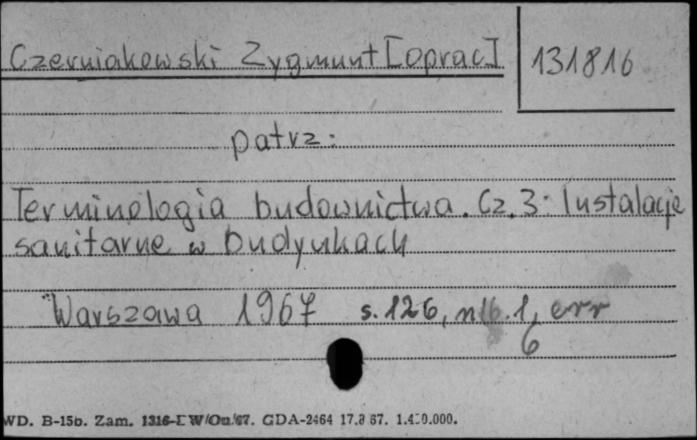 Czerniakowski Zygmunt [oprac]
131816
patrz:
Terminologia budownictwa. Cz. 3. Instalacje
sanitarne w budynkach
Warszawa 1967 s. 126, nlb. 1, err
6
WD. B-15b. Zam. GDA-2464 17.8 67.